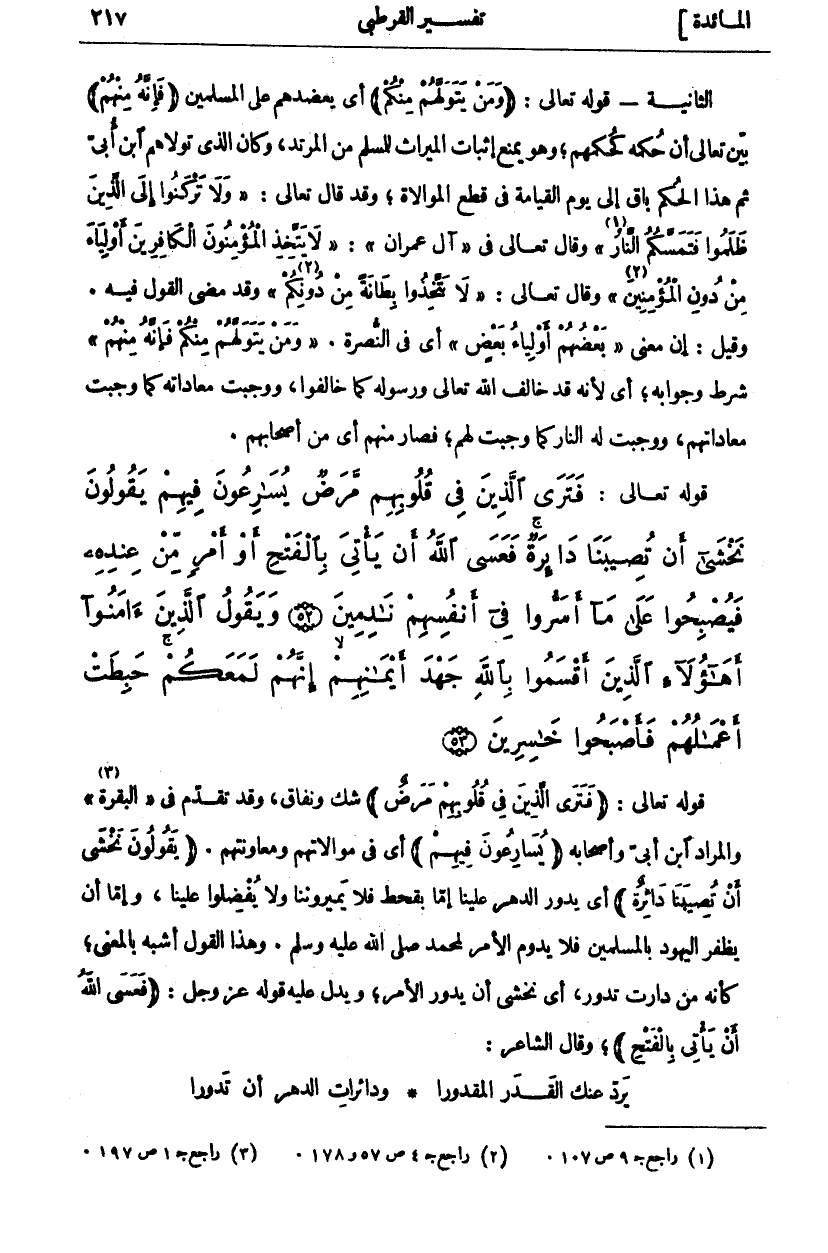 المائدة ] تفسير القرطبى ٢١٧
الثانية — قوله تعالى : ﴿وَمَنْ يَتَوَلَّهُمْ مِنْكُمْ﴾ أى يعضدهم على المسلمين ﴿فَإِنَّهُ مِنْهُمْ﴾
بيّن تعالى أن حُكمه كحُكمهم؛ وهو يمنع إثبات الميراث للمسلم من المرتد، وكان الذى تولاهم ٱبن أُبىّ
ثم هذا الحُكم باق إلى يوم القيامة فى قطع الموالاة ؛ وقد قال تعالى : « وَلَا تَرْكَنُوا إِلَى الَّذِينَ
ظَلَمُوا فَتَمَسَّكُمُ النَّارُ (١) » وقال تعالى فى « آل عمران » : « لَا يَتَّخِذِ الْمُؤْمِنُونَ الْكَافِرِينَ أَوْلِيَاءَ
مِنْ دُونِ الْمُؤْمِنِينَ (٢) » وقال تعالى : « لَا تَتَّخِذُوا بِطَانَةً مِنْ دُونِكُمْ (٢) » وقد مضى القول فيه .
وقيل : إن معنى « بَعْضُهُمْ أَوْلِيَاءُ بَعْضٍ » أى فى النُّصرة . « وَمَنْ يَتَوَلَّهُمْ مِنْكُمْ فَإِنَّهُ مِنْهُمْ »
شرط وجوابه؛ أى لأنه قد خالف الله تعالى ورسوله كما خالفوا، ووجبت معاداته كما وجبت
معاداتهم، ووجبت له النار كما وجبت لهم؛ فصار منهم أى من أصحابهم .
قوله تعالى : فَتَرَى ٱلَّذِينَ فِى قُلُوبِهِم مَّرَضٌ يُسَٰرِعُونَ فِيهِمْ يَقُولُونَ
نَخْشَىٰٓ أَن تُصِيبَنَا دَآئِرَةٌ ۚ فَعَسَى ٱللَّهُ أَن يَأْتِىَ بِٱلْفَتْحِ أَوْ أَمْرٍ مِّنْ عِندِهِۦ
فَيُصْبِحُوا عَلَىٰ مَآ أَسَرُّوا فِىٓ أَنفُسِهِمْ نَٰدِمِينَ ﴿٥٢﴾ وَيَقُولُ ٱلَّذِينَ ءَامَنُوٓا
أَهَٰٓؤُلَآءِ ٱلَّذِينَ أَقْسَمُوا بِٱللَّهِ جَهْدَ أَيْمَٰنِهِمْ ۙ إِنَّهُمْ لَمَعَكُمْ ۚ حَبِطَتْ
أَعْمَٰلُهُمْ فَأَصْبَحُوا خَٰسِرِينَ ﴿٥٣﴾
قوله تعالى : ﴿فَتَرَى الَّذِينَ فِى قُلُوبِهِمْ مَرَضٌ﴾ شك ونفاق، وقد تقدّم فى « البقرة (٣) »
والمراد ٱبن أبىّ وأصحابه ﴿يُسَارِعُونَ فِيهِمْ﴾ أى فى موالاتهم ومعاونتهم . ﴿يَقُولُونَ نَخْشَى
أَنْ تُصِيبَنَا دَائِرَةٌ﴾ أى يدور الدهر علينا إمّا بقحط فلا يَميروننا ولا يُفْضِلوا علينا ، وإمّا أن
يظفر اليهود بالمسلمين فلا يدوم الأمر لمحمد صلى الله عليه وسلم . وهذا القول أشبه بالمعنى؛
كأنه من دارت تدور، أى نخشى أن يدور الأمر؛ ويدل عليه قوله عز وجل : ﴿فَعَسَى اللَّهُ
أَنْ يَأْتِىَ بِالْفَتْحِ﴾؛ وقال الشاعر :
يَردّ عنك القَـدَر المقدورا * ودائراتِ الدهر أن تَدورا
(١) راجع ج ٩ ص ١٠٧ . (٢) راجع ج ٤ ص ٥٧ و ١٧٨ . (٣) راجع ج ١ ص ١٩٧ .